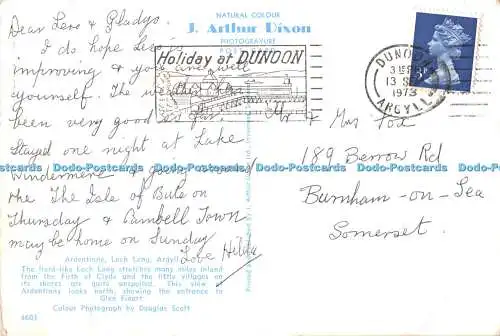 Dear Les & Gladys.
I do hope Les is
improving & you are well
yourself. The weather has
been very good so far.
Stayed one night at Lake
Windermere & going
the The Isle of Bute on
Thursday & Cambell Town
may be home on Sunday
Love Hilda
NATURAL COLOUR
J. Arthur Dixon
PHOTOGRAVURE
POST
Holiday at DUNOON
DUNOON
13 SE
1973
ARGYLL
Mr & Mrs Tod
189 Berrow Rd
Burnham-on-Sea
Somerset.
Dodo-Postcards Dodo-Postcards Dodo-Postcards Dodo-Postcards Dodo-Postcards
Ardentinny, Loch Long, Argyll
The fiord-like Loch Long stretches many miles inland
from the Firth of Clyde and the little villages on
its shores are quite unspoiled. This view
Ardentinny looks north, showing the entrance to
Glen Finart
Colour Photograph by Douglas Scott
4601